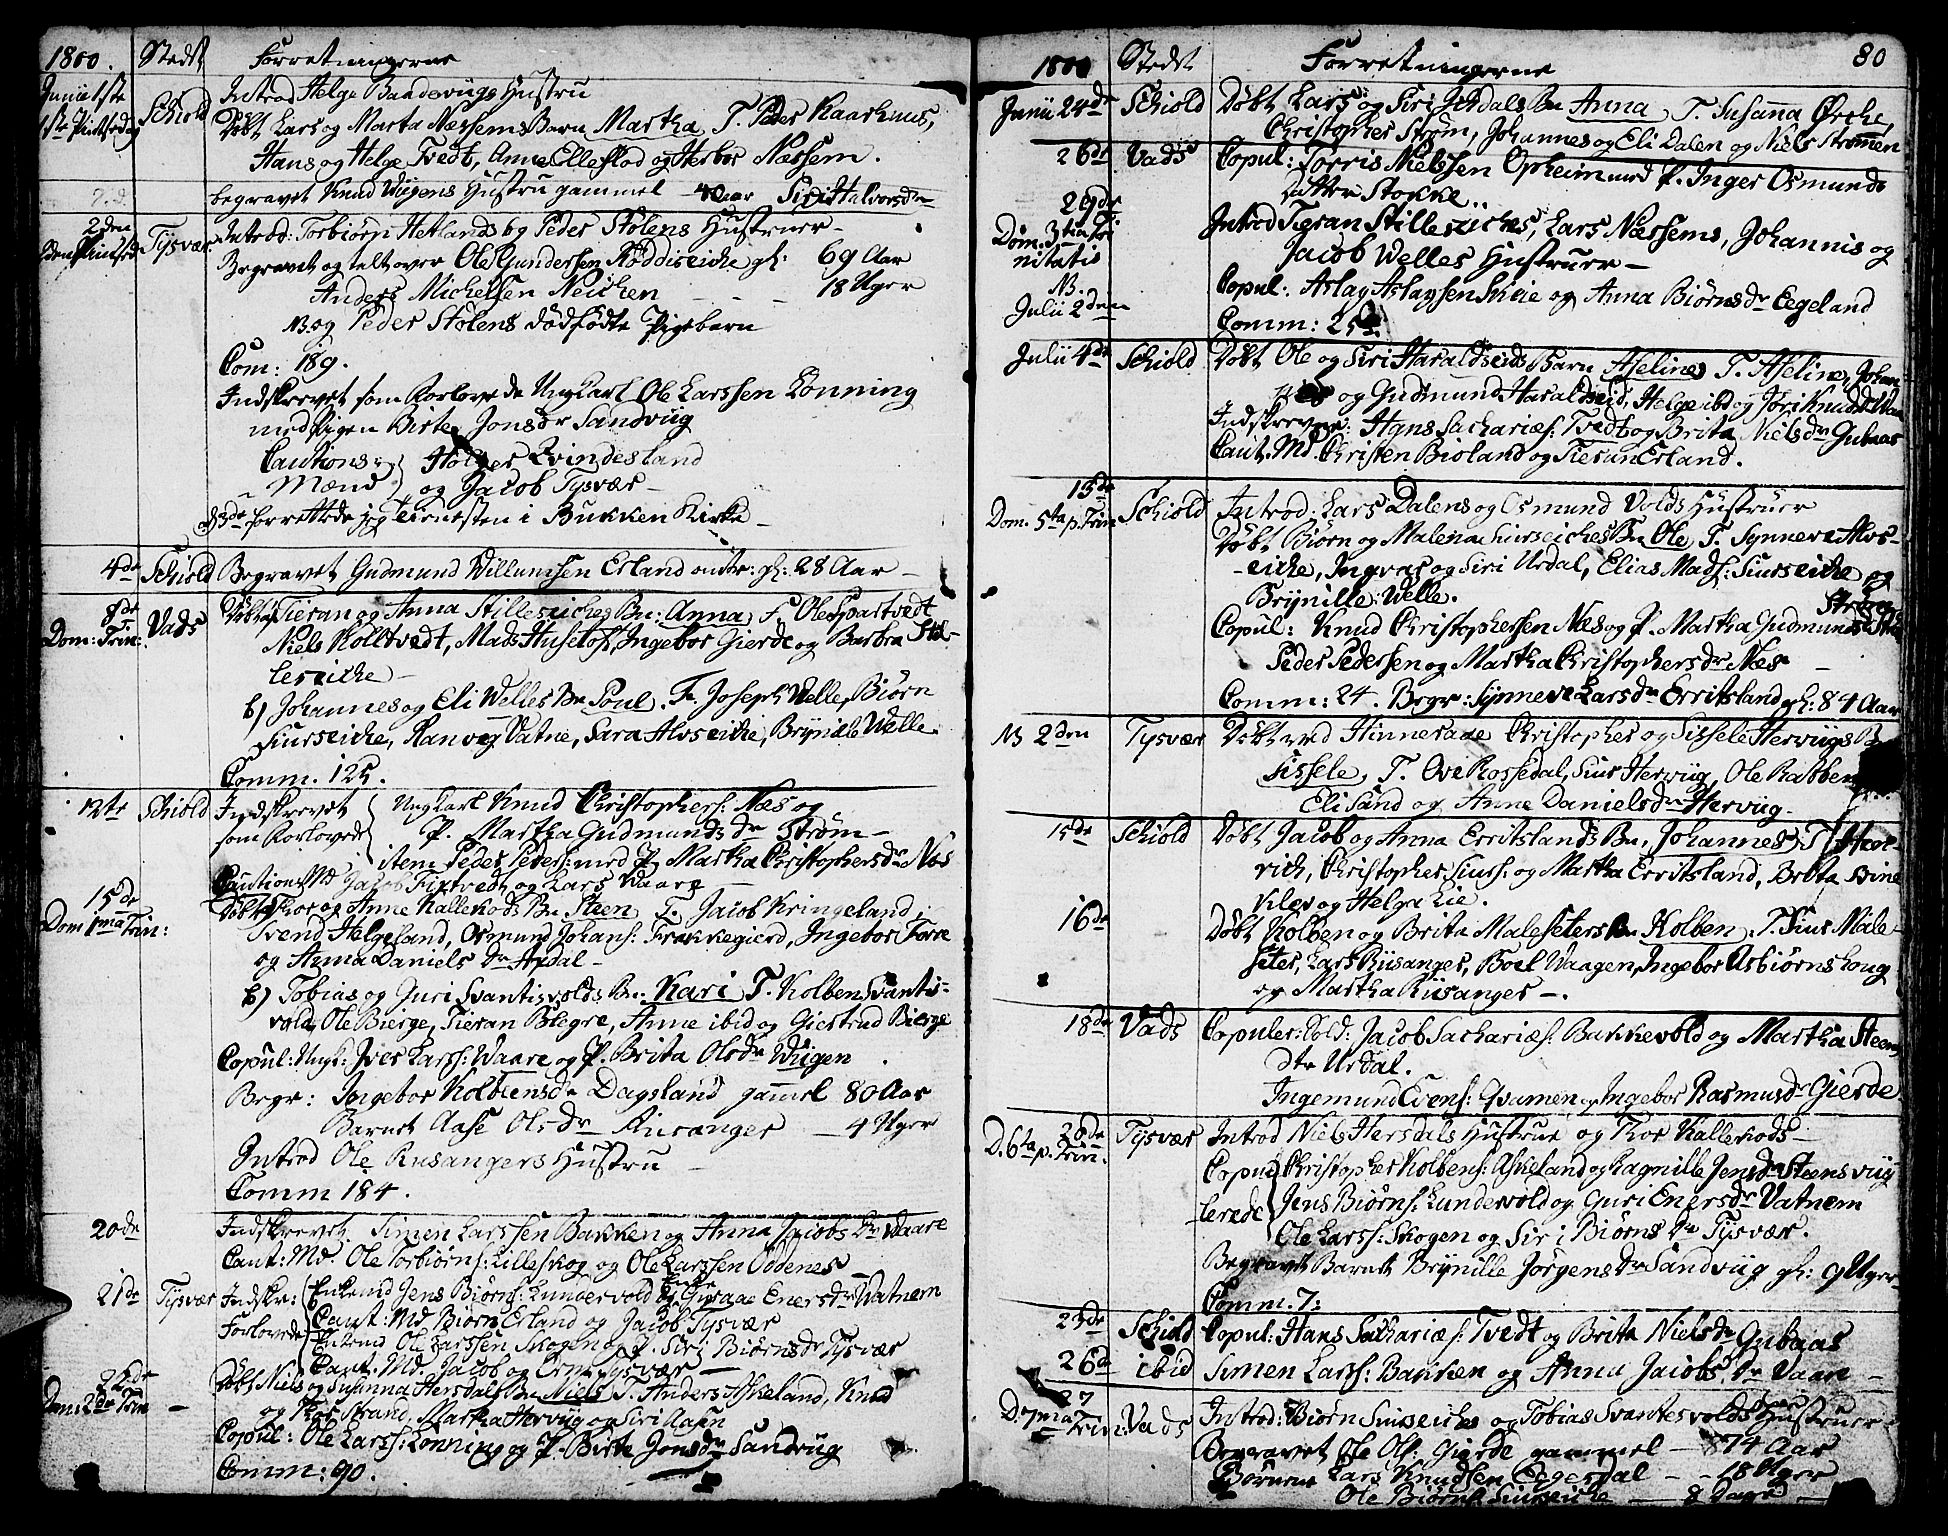 1800. Stedet Forretningerne
Junii 1ste Schiold Introd Helge Bandevigs Hustru
1ste Pintsedag Døbt Lars og Marta Næssems Barn Martha T. Peder Kaarhuus,
Hans og Helge Tvedt, Anne Ellestad og Herbor Næssem.
begravet Knud Wiigens Hustru gammel Siri Halvorsdr
2den Tysvær Introd: Torbiørn Hetlands og Peder Stølens Hustruer
2den Pintsed Begravet og talt over Ole Gundersen Røddiseiche gl: 69 Aar
Anders Michelsen Neichen - - - 18 Uger
og Peder Stølens dødfødte Pigebarn
Com: 189.
Indskrevet som Forlovede Ungkarl Ole Larssen Lønning
med Pigen Birte Jonsdr Sandviig
Cautions Holger Qvindesland
Mænd og Jacob Tysvær
d 3de forrettede jeg tienesten i Bukken Kirke
4de Schiold Begravet Gudmund Villumsen Erland omtr: gl: 28 Aar
8de Vads Døbt a) Tieran og Anna Stilleseiches Bn: Anna F Ole Svartvedt
Dom: Trin: Niels Koltvedt, Mads Husetoft, Ingebor Gierde og Barbra Stil-
leseiche
b) Johannes og Eli Welles Bn Poul. F. Joseph Welle, Biørn
Siurseiche, Ranveg Vatne, Sara Alvseiche, Brynilde Welle.
Comm. 125.
12te Schiold Indskrevet Ungkarl Knud Christophers: Næs og
som Forlovede P. Martha Gudmundsdr Strøm
item Peder Peders: med P. Martha Christophersdr Næs
Cautions Md Jacob Fixtvedt og Lars Vaare
15de Døbt a) Thor og Anne Kallekods Bn Steen T. Jacob Kringeland,
Dom 1ma Trin: Svend Helgeland, Osmund Johans: Frakkegierd, Ingebor Torre
og Anna Daniels dr Apdal
b) Tobias og Guri Svantisvolds Bn: Kari T. Kolben Svantis-
vold, Ole Bierge, Tieran Blegre, Anne ibid og Giertrud Bierge
Copul: Ungk: Iver Larss: Waare og P. Brita Olsdr Wiigen.
Begr: Ingebor Kolbiensdr Dagsland gammel 80 Aar
Barnet Aase Olsdr Rusanger 4 Uger
Introd Ole Rusangers Hustru
Comm 184.
20de Indskrevet Simen Larssen Bakken og Anna Jacobs dr Vaare
Caut: Md. Ole Torbiørns: Lilleskog og Ole Larssen Oddenes
21de Tysvær Indskr: Enkemd Jens Biørns: Lundevold og Enersdr Vatnem
Forlovede Caut: Md Biørn Erland og Jacob Tysvær
Enkemd Ole Larssen Skogen og P. Siri Biørnsdr Tysvær
Caut: Md. Jacob og Orm Tysvær
22de Døbt Niels og Susanna Hersdals Bn Niels T. Anders Askeland, Knud
Dom: 2da Trin og Thor Strand, Martha Herviig og Siri Aasen
Copul: Ole Larss: Lønning og P. Birte Jonsdr Sandviig
Comm: 90.
1800 Stedet Forretningerne 80
Junii 24de Schiold Døbt Lars og Siri Dalens Bn Anna T. Susanna Ørche,
Christopher Strøm, Johannes og Eli Dalen og Niels Strømmen
26de Vads Copul: Torris Nielssen Opheim med P. Inger Osmunds
datter Stokke.
29de Introd Tieran Stilleseiches, Lars Næssems, Johannis og
Dom. 3tia Tri Jacob Welles Hustruer
nitatis
Julii 2den Copul: Aslag Aslagsen Skeie og Anna Biørnsdr Eegeland
Comm: 25
Julii 4de Schiold Døbt Ole og Siri Haraldseids Barn Aseline T. Aseline, Johan-
nes og Gudmund Haraldseid, Helge ibd og Jøri Knudsdr
Indskrevne: Hans Sachariæs: Tvedt og Brita Nielsdr Gutaas
Caut. Md. Christen Bioland og Tieran Erland.
13de Schiold Introd. Lars Dalens og Osmund Volds Hustruer
Dom. 5ta p. Trin Døbt Biørn og Malena Siurseiches Bn Ole T. Synneve Alvs-
eiche, Ingver og Siri Urdal, Elias Mads: Siurseiche og
Brynille Welle.
Copul: Knud Christophersen Næs og P. Martha Gudmundsdr Strøm
Peder Pedersen og Martha Christophersdr Næs
Comm: 24. Begr: Synneve Larsdr Erritsland gl: 84 Aar
NB 2den Tysvær Døbt ved Hinneraae Christopher og Sissele Herviigs Bn
Sissele, T. Ove Rossedal, Siur Herviig, Ole Rabben
Eli Sand og Anne Danielsdr Herviig.
15de Schiold Døbt Jacob og Anna Erritslands Bn, Johannes, T. Hov-
rich, Christopher Siurs: og Martha Erritsland, Brita Bine
og Helga Lie.
16de Døbt Kolben og Brita Maleseters Bn Kolben. T. Siur Male-
seter, Lars Rusanger, Boel Waagen, Ingebor Asbiørnshoug
og Martha Rusanger.
18de Vads Copuler: Sold: Jacob Sachariæs: Bakkevold og Martha Steens
dtr Urdal.
Ingemund Evens: Qvamen og Ingebor Rasmusdr Gierde
20de Tysvær Introd Niels Hersdals Hustrue og Thor Kallekods
D. 6ta p. Trin. Copu Christopher Kolbens: Askeland og Ragnille Jensdr Steensviig
lerede Jens Biørns: Lundevold og Guri Enersdr Vatnem
Ole Larss: Skogen og Siri Biørns dr Tysvær.
Begravet Barnet Brynille Jørgensdr Sandviig gl: 9 Uger
Comm. 7:
23de Schiold Copul: Hans Sachariæs: Tvedt og Brita Nielsdr Gutaas
26de ibid Simen Larss: Bakken og Anna Jacobs dr Vaare
27 Vads Introd: Biørn Siurseiches og Tobias Svantesvolds Hustruer
D. 7ma Trin: Begravet Ole Ols: Gierde gammel 74 Aar
Børnene Lars Knudsen Eegesdal - - 18 Uger
Ole Biørns: Siurseiche 8 Dage